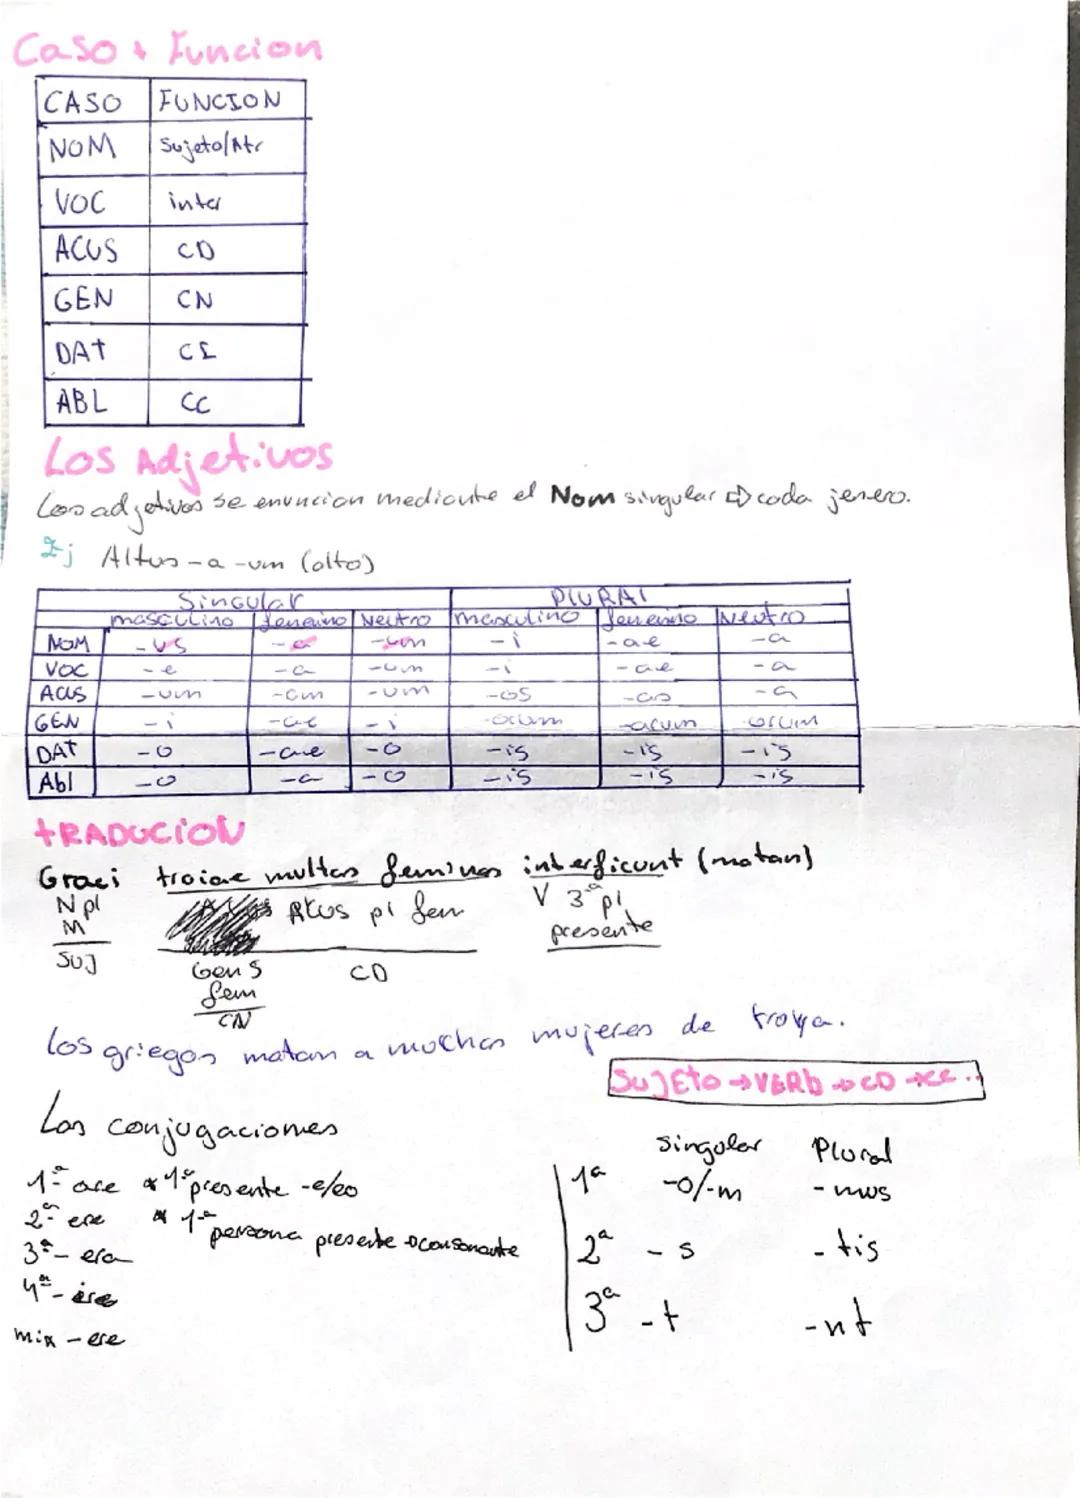 Caso + Funcion
CASO FUNCION
NOM Sujeto/Atr
VOC inter
ACUS CD
GEN CN
DAT CI
ABL CC
Los Adjetivos
Los adjetivos se enuncian mediante el Nom singular ⇨ cada jenero.
Ej Altus -a -um (alto)
Singular PlURAl
masculino femenino Neutro masculino femenino Neutro
NOM -us -a -um -i -ae -a
VOC -e -a -um -i -ae -a
Acus -um -am -um -os -as -a
GEN -i -ae -i -orum -arum -orum
DAT -o -ae -o -is -is -is
Abl -o -a -o -is -is -is
tRADUCION
Graeci troiae multas feminas interficunt (matan)
N pl Acus pl fem V 3ª pl
M presente
SUJ Gen S CD
fem
CN
los griegos matan a muchas mujeres de troya.
SUJEto → VERb → CD → CC..
Las conjugaciones
singular Plural
1ª are * 1ª presente -e/eo
1ª -o/-m -mus
2ª ere * 1ª persona presente → consonante
2ª -s -tis
3ª - ere
4ª - ire
3ª -t -nt
mix - ere